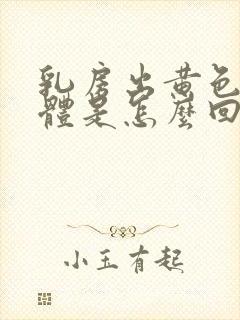 乳房出黄色
體是怎麼回
小玉有起